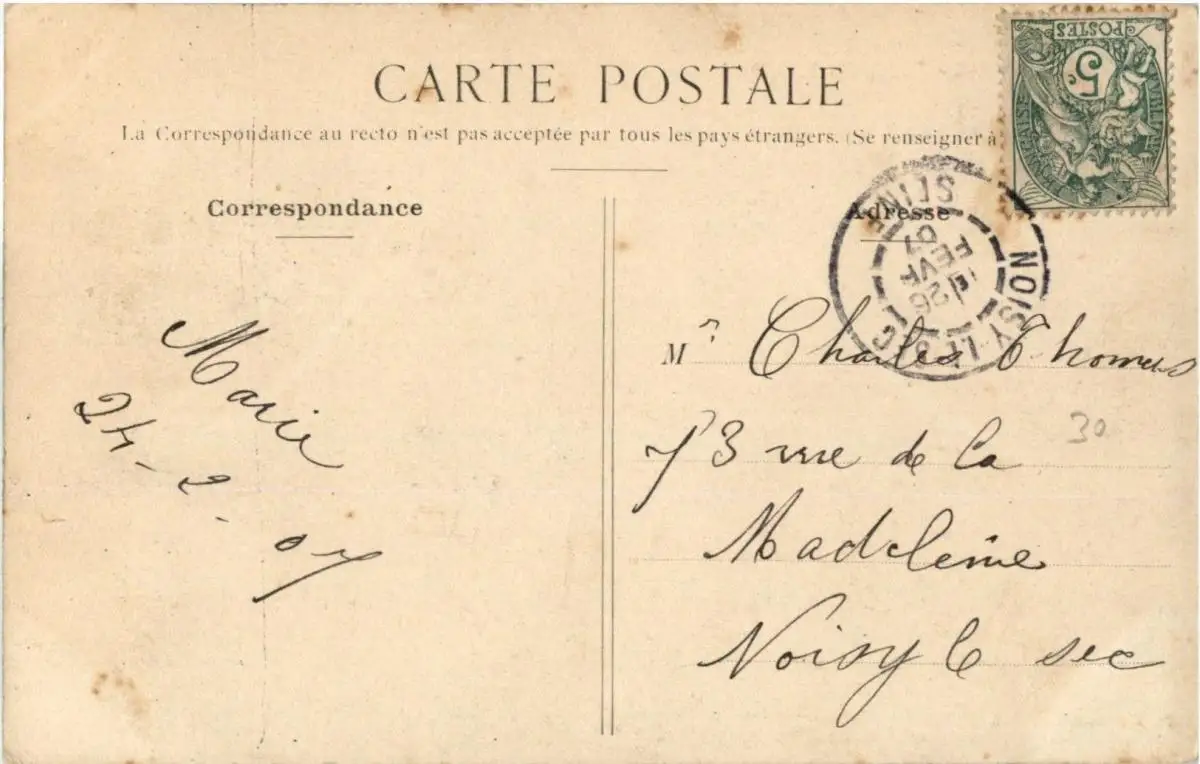 CARTE POSTALE
La Correspondance au recto n'est pas acceptée par tous les pays étrangers. (Se renseigner à
Correspondance
Adresse
POSTES
5c
NOISY-LE-SEC
SEINE
26
FEVR
07
Marie
24-2-07
Mr Charles Thomas
73 rue de la
30
Madeleine
Noisy le sec